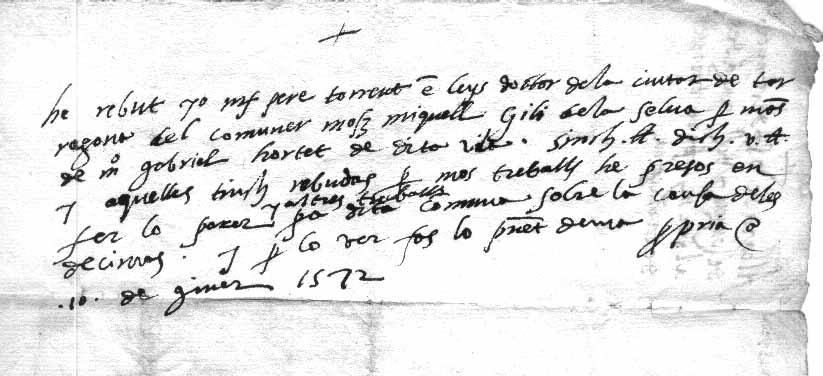 he rebut yo mº pere torrent e leys doctor dela ciutat de tar
ragona del comuner moss miquell Gili dela selva p mos
de mº gabriel hortet de dita vila . sinch . ll . dich . v . ll .
y aquelles tinch rebudas p mos treballs he presos en
fer lo parer y altres treballs pa dita comuna sobre la causa deles
decimas . y p lo ver fas lo pnt de ma ppria a
.10. de giner 1572